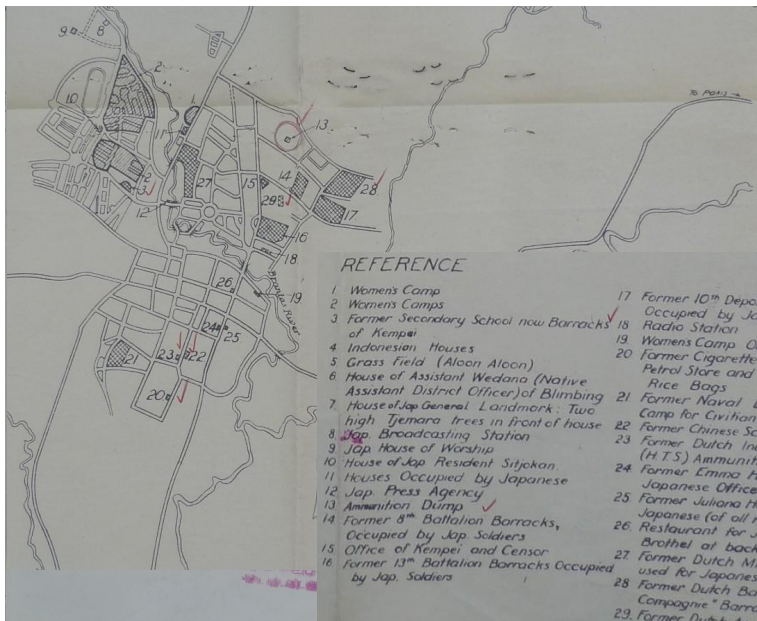 9
8
2
10
1
11
13
2
3
27
15
14
28
29
12
17
16
18
26
19
Brantas River
24
25
21
23
22
20
To Patis →
REFERENCE
1 Women's Camp
2 Women's Camps
3 Former Secondary School now Barracks
of Kempei
4 Indonesian Houses
5 Grass Field (Aloon Aloon)
6 House of Assistant Wedana (Native
Assistant District Officer) of Blimbing
7 House of Jap General Landmark: Two
high Tjemara trees in front of house
8 Jap. Broadcasting Station
9 Jap. House of Worship
10 House of Jap Resident Sitjokan
11 Houses Occupied by Japanese
12 Jap. Press Agency
13 Ammunition Dump
14 Former 8th Battalion Barracks,
Occupied by Jap. Soldiers
15 Office of Kempei and Censor
16 Former 13th Battalion Barracks Occupied
by Jap. Soldiers
17 Former 10th Depo
Occupied by Ja
18 Radio Station
19 Women's Camp O
20 Former Cigarette
Petrol Store and
Rice Bags
21 Former Naval
Camp for Civilian
22 Former Chinese Sc
23 Former Dutch In
(H.T.S) Ammunit
24 Former Emma H
Japanese Office
25 Former Juliana H
Japanese (of all r
26. Restaurant for J
Brothel at back
27. Former Dutch M
used for Japanes
28 Former Dutch Ba
Compagnie" Barra
29. Former Dutch